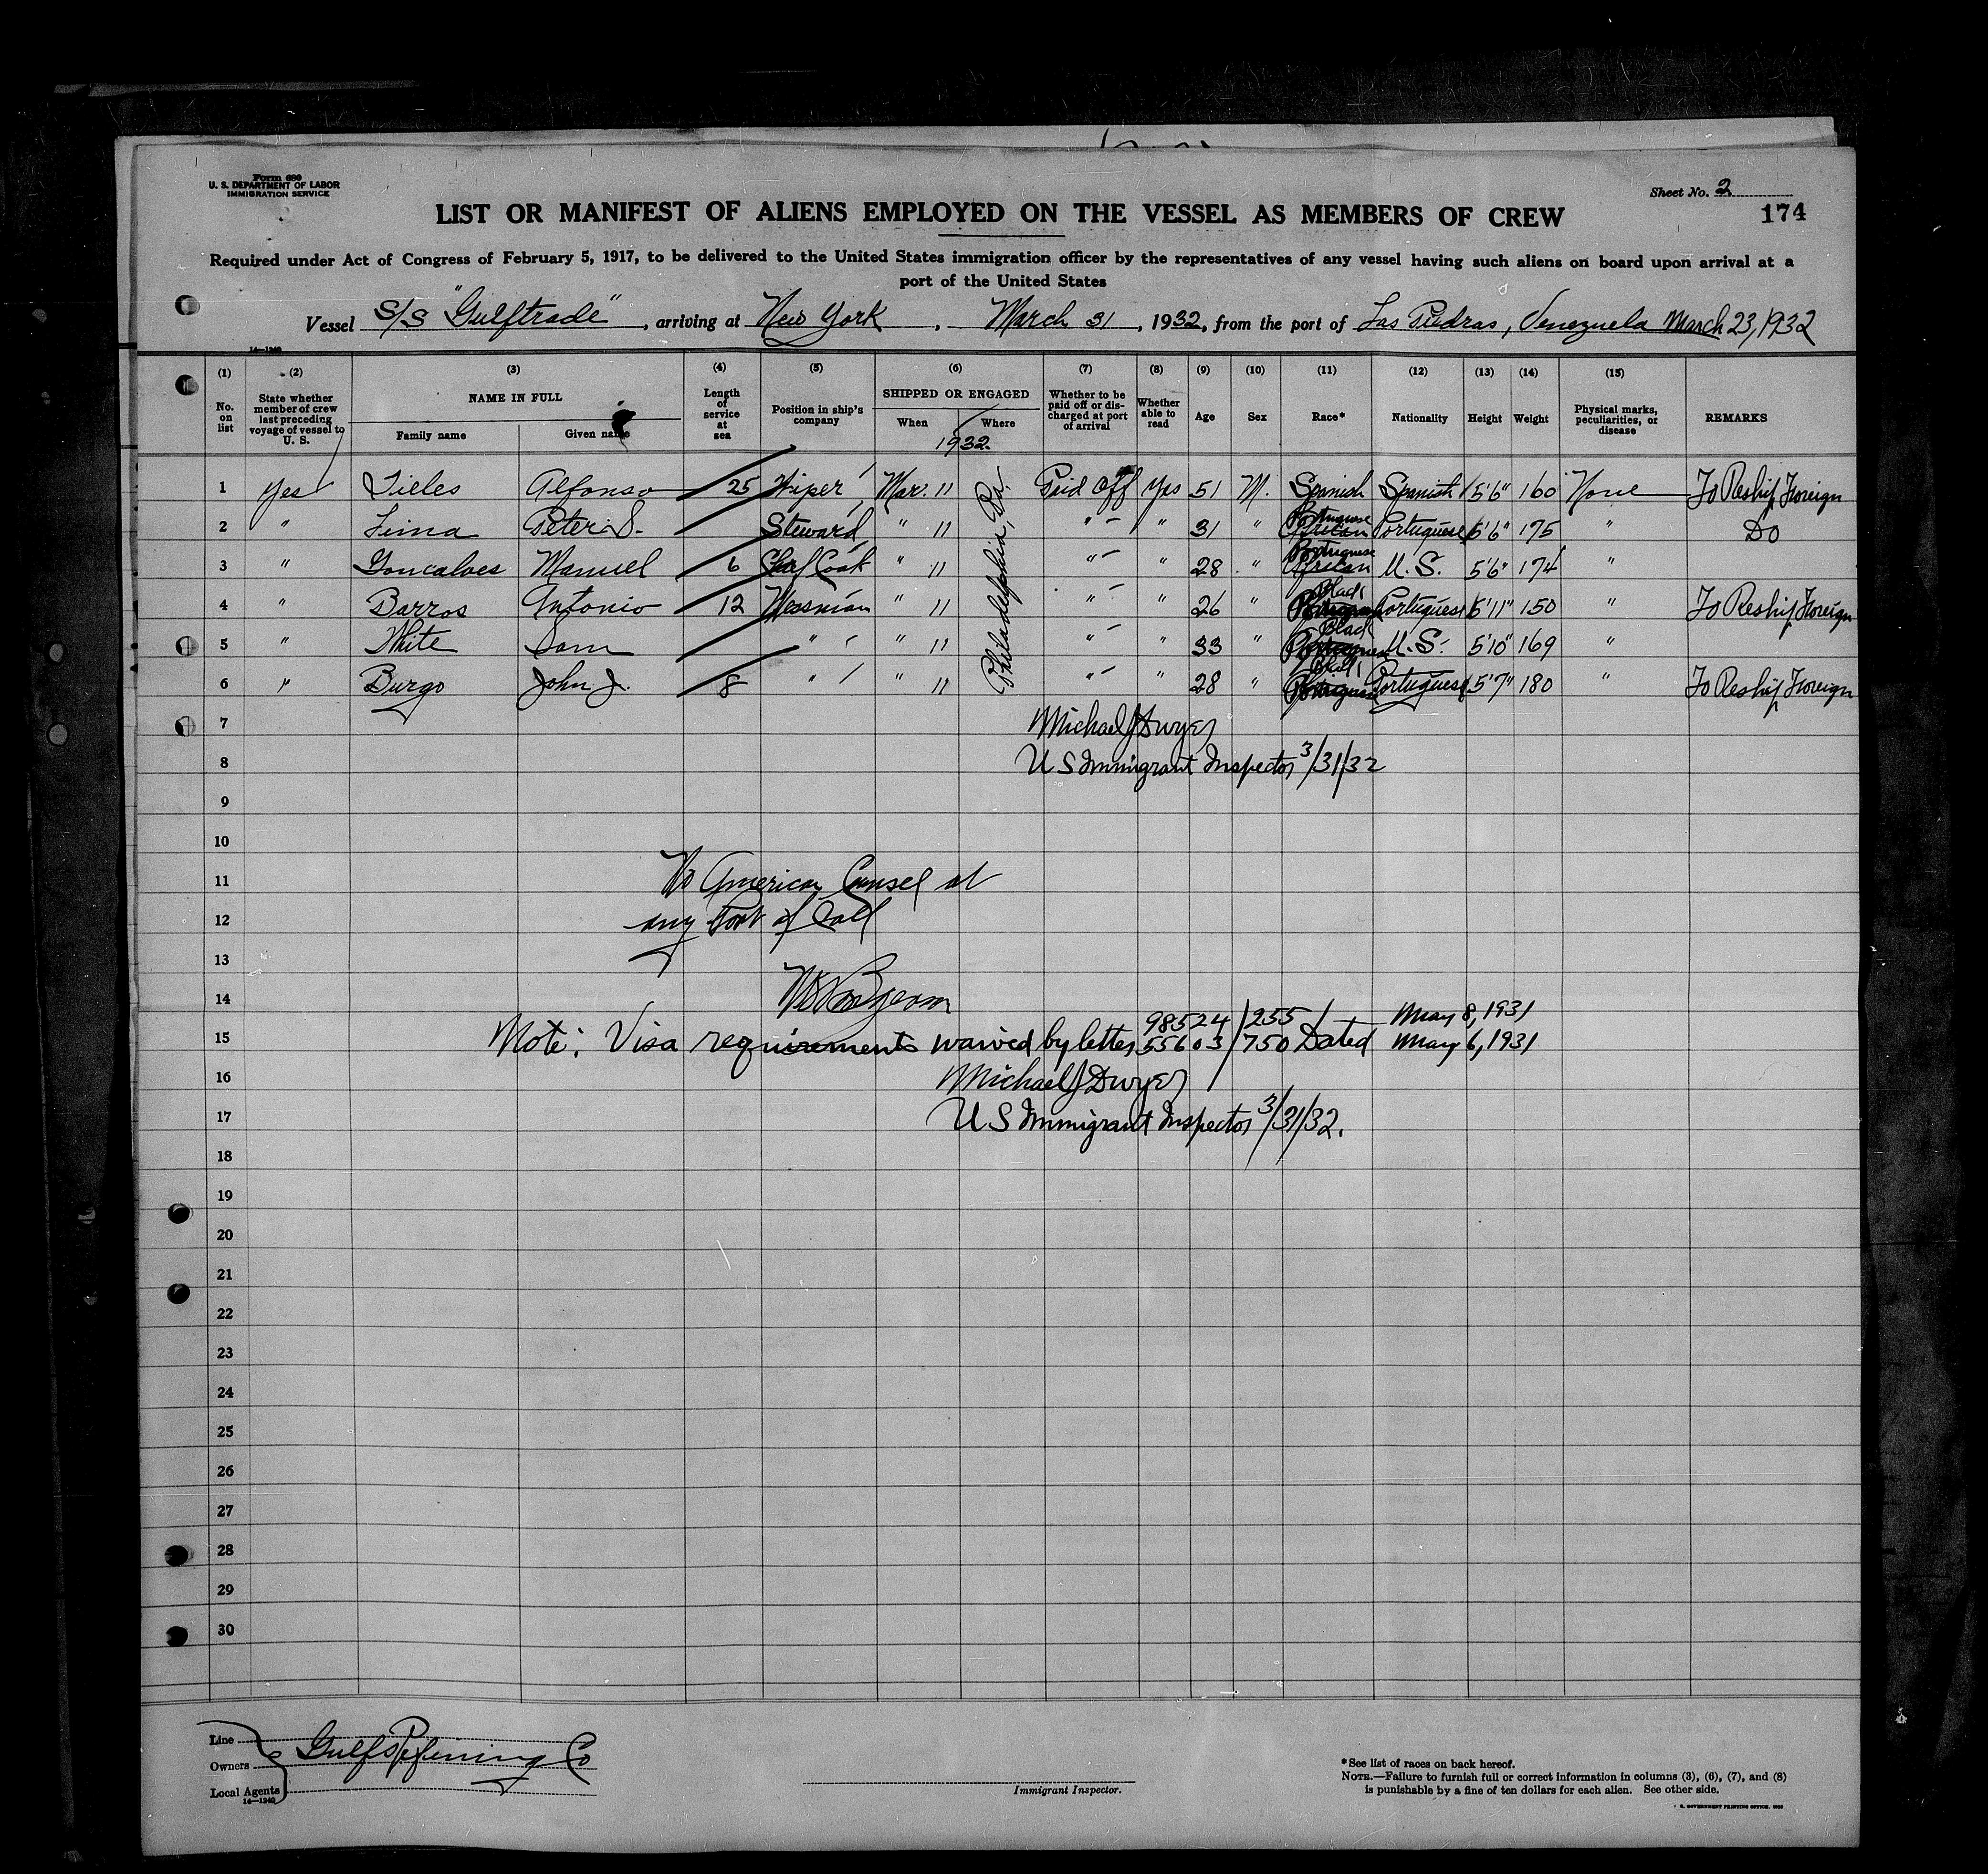 Form 680
U. S. DEPARTMENT OF LABOR
IMMIGRATION SERVICE
Sheet No. 2
174
LIST OR MANIFEST OF ALIENS EMPLOYED ON THE VESSEL AS MEMBERS OF CREW
Required under Act of Congress of February 5, 1917, to be delivered to the United States immigration officer by the representatives of any vessel having such aliens on board upon arrival at a
port of the United States
Vessel S/S "Gulftrade", arriving at New York, March 31, 1932, from the port of Las Piedras, Venezuela March 23, 1932
14—1240
(1) (2) (3) (4) (5) (6) (7) (8) (9) (10) (11) (12) (13) (14) (15)
No. on list
State whether member of crew last preceding voyage of vessel to U. S.
NAME IN FULL
Family name Given name
Length of service at sea
Position in ship's company
SHIPPED OR ENGAGED
When Where
1932
Whether to be paid off or discharged at port of arrival
Whether able to read
Age
Sex
Race*
Nationality
Height
Weight
Physical marks, peculiarities, or disease
REMARKS
Philadelphia, Pa.
1 Yes Tieles Alfonso 25 Wiper Mar. 11 Paid Off Yes 51 M. Spanish Spanish 5'6" 160 None To Reship Foreign
2 " Lima Peter S. Steward " 11 " " 31 " Portuguese African Portuguese 5'6" 175 " Do
3 " Goncalves Manuel 6 Chief Cook " 11 " " 28 " Portuguese African U.S. 5'6" 174 "
4 " Barros Antonio 12 Messman " 11 " " 26 " Black Portuguese Portuguese 5'11" 150 " To Reship Foreign
5 " White Sam " " 11 " " 33 " Black Portuguese U.S. 5'10" 169 "
6 " Burgo John J. 8 " " 11 " " 28 " Black Portuguese Portuguese 5'7" 180 " To Reship Foreign
7 Michael J Dwyer
8 U S Immigrant Inspector 3/31/32
9
10
11 No American Counsel at
12 any Port of Call
13
14
98524/255 May 8, 1931
15 Note: Visa requirements waived by letter 55603/750 Dated May 6, 1931
16 Michael J Dwyer
17 U S Immigrant Inspector 3/31/32.
18
19
20
21
22
23
24
25
26
27
28
29
30
Line
Owners Gulf Refining Co
Local Agents
14—1240
Immigrant Inspector.
*See list of races on back hereof.
NOTE.—Failure to furnish full or correct information in columns (3), (6), (7), and (8)
is punishable by a fine of ten dollars for each alien. See other side.